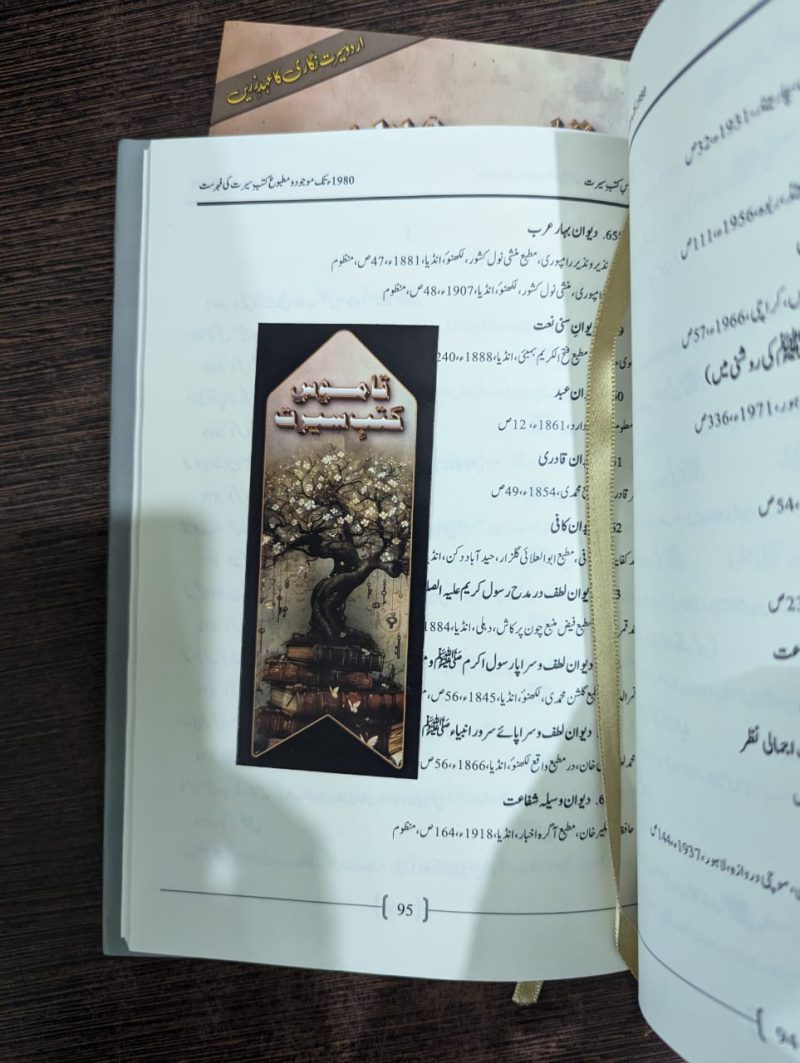 اردو سیرت نگاری کا عہدِ زریں
کتبِ سیرت
1980ء تک موجود و مطبوع کتبِ سیرت کی فہرست
دیوان بہار عرب
نذیر رامپوری، مطبع منشی نول کشور، لکھنؤ، انڈیا، 1881ء، 47ص، منظوم
منشی نول کشور، لکھنؤ، انڈیا، 1907ء، 48ص، منظوم
دیوانِ سنی نعت
مطبع فتح الکریم بمبئی، انڈیا، 1888ء، 240
عبد
1861ء، 12ص
قادری
محمدی، 1854ء، 49ص
کافی
مطبع ابوالعلائی گلزار، حیدآباد دکن،
دیوان لطف در مدح رسول کریم علیہ
مطبع فیض منبع چون پرکاش، دہلی، انڈیا،
دیوان لطف و سراپا رسول اکرم ﷺ
گلشن محمدی، لکھنؤ، انڈیا، 1845ء، 56ص،
دیوان لطف و سراپائے سرور انبیاء ﷺ
خان، در مطبع واقع لکھنؤ، انڈیا، 1866ء، 56ص
دیوان وسیلہ شفاعت
خان، مطبع آگرہ اخبار، انڈیا، 1918ء، 164ص، منظوم
95
قاموس
کتبِ سیرت
1931ء، 32ص
1956ء، 111ص
کراچی، 1966ء، 57ص
ﷺ کی روشنی میں)
1971ء، 336ص
54ص
اجمالی نظر
دروازہ، لاہور، 1937ء، 144ص
94